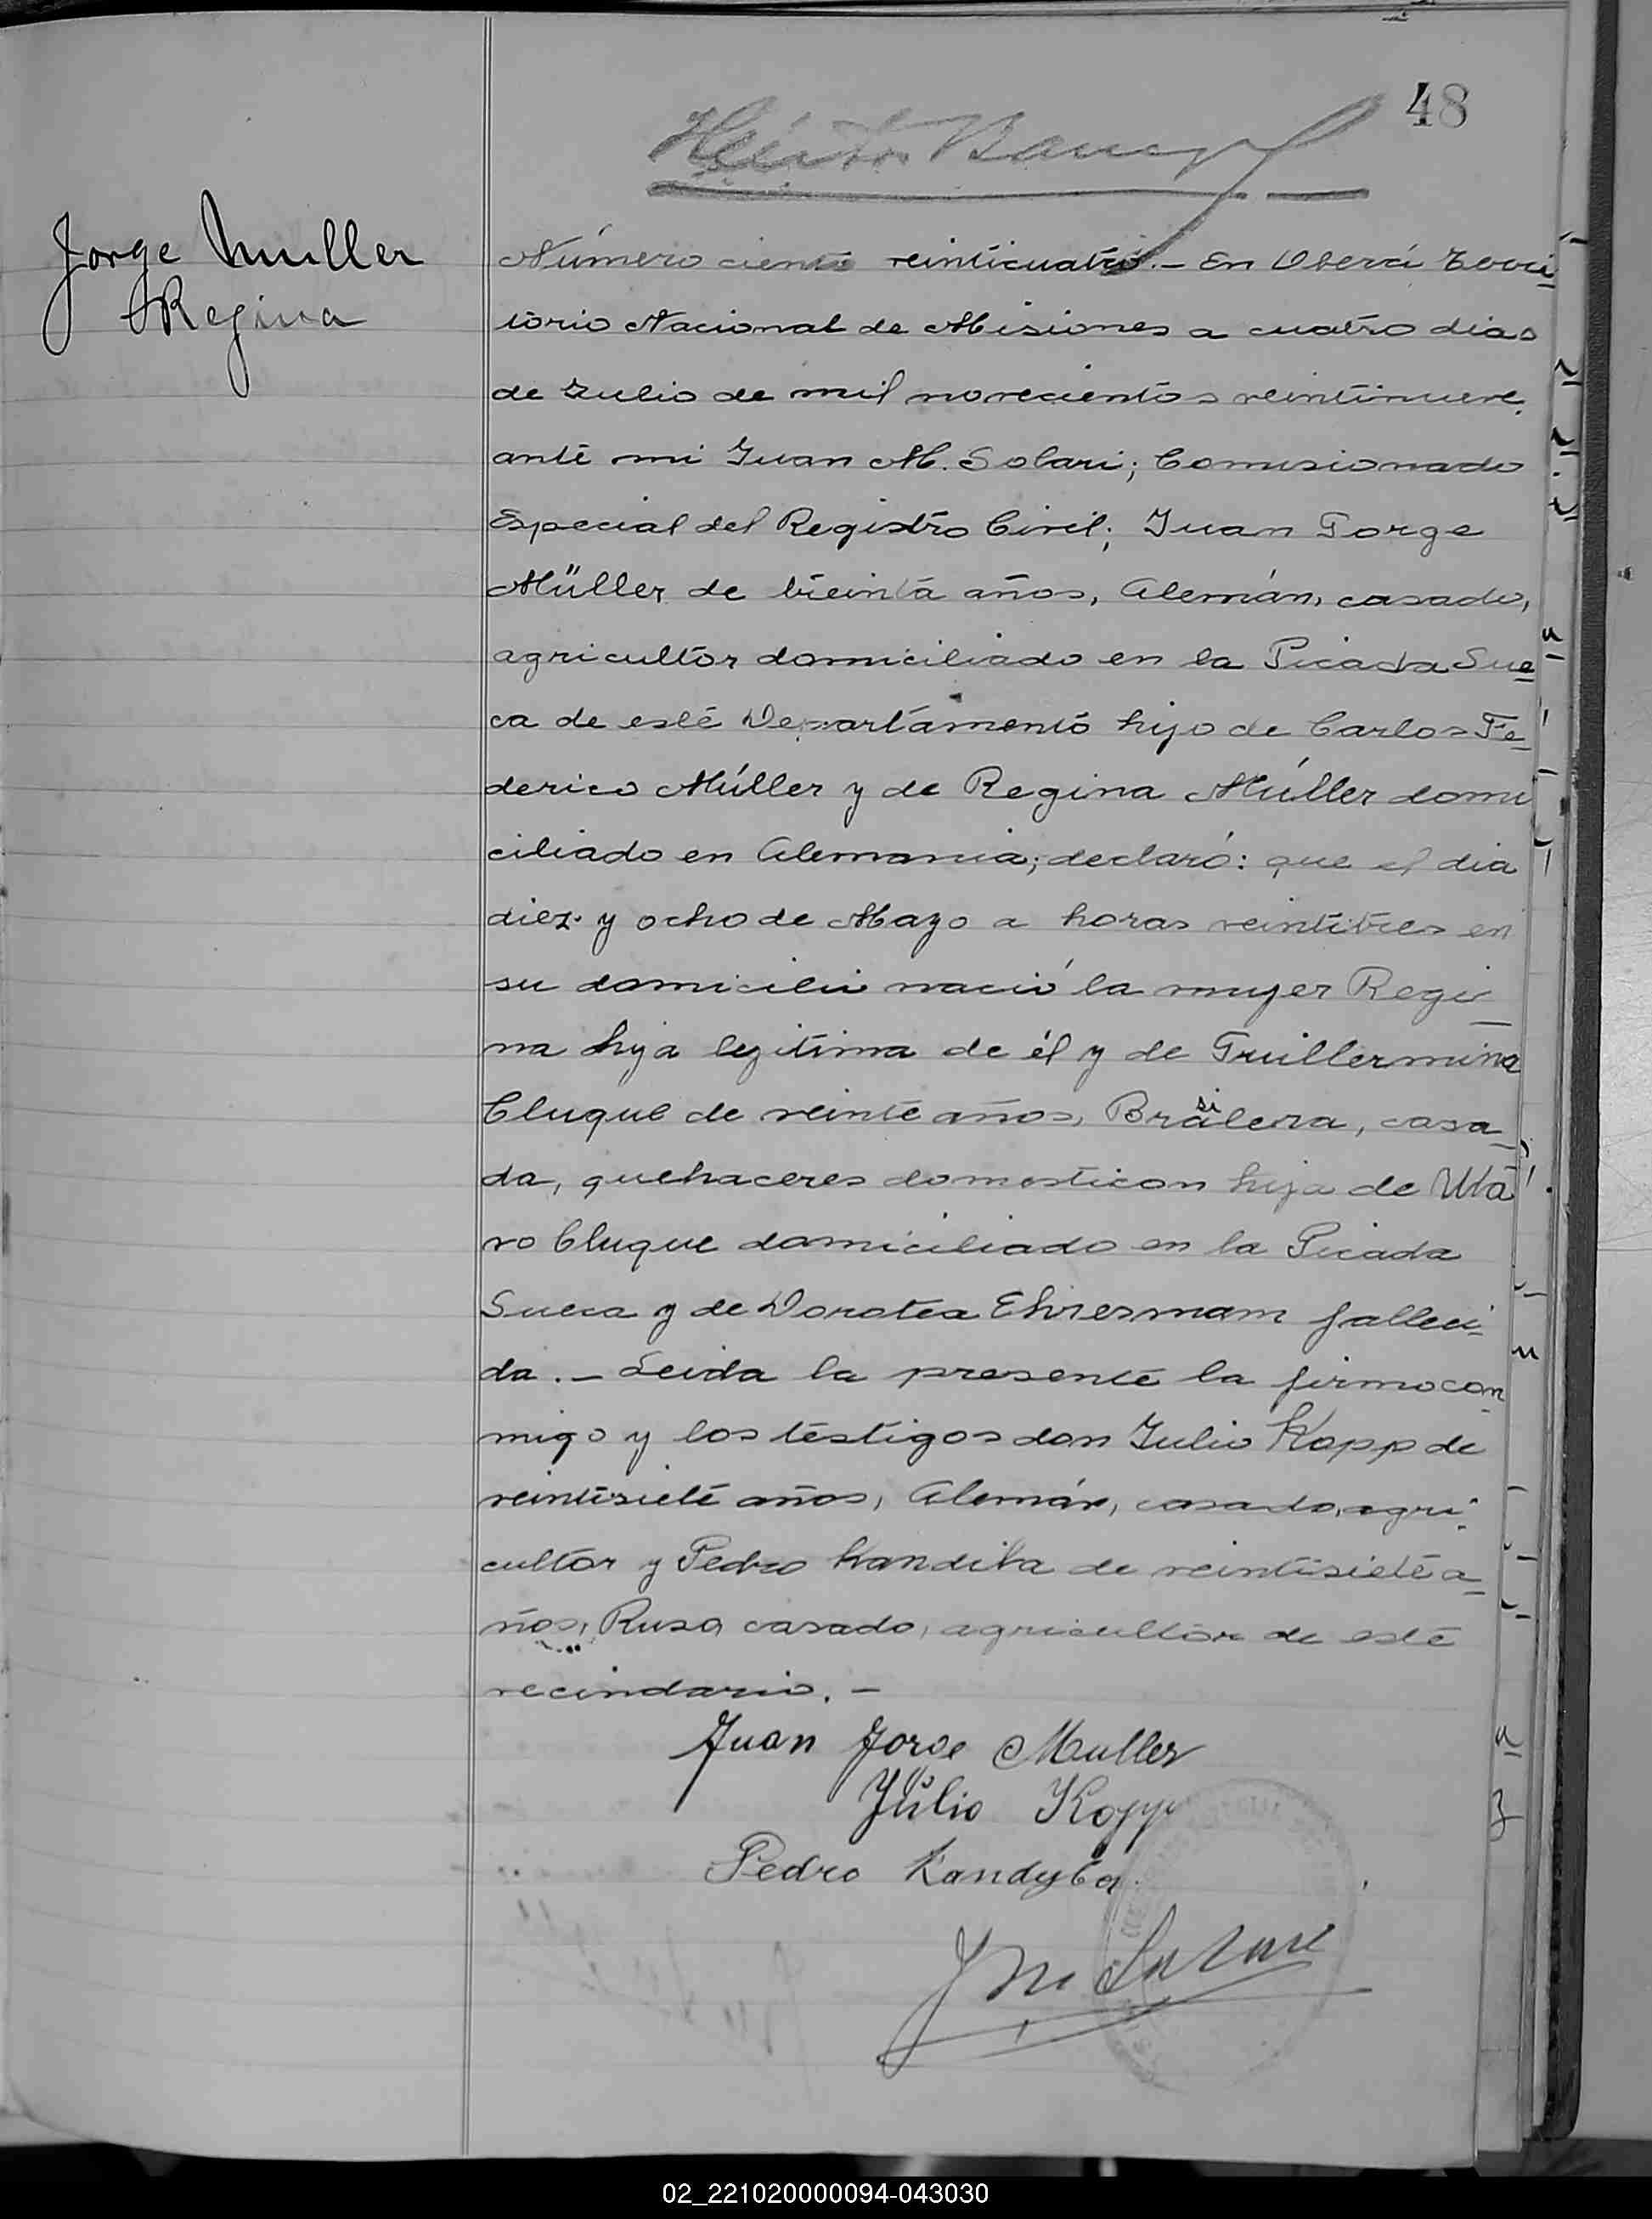 48
Jorge Muller
Regina
Número ciento veinticuatro.- En Oberá Terri
torio Nacional de Misiones a cuatro dias
de Julio de mil novecientos veintinueve,
ante mi Juan M. Solari; Comisionado
Especial del Registro Civil; Juan Jorge
Müller de treinta años, Alemán, casado,
agricultor domiciliado en la Picada Sue
ca de este Departamento hijo de Carlos Fe
derico Müller y de Regina Müller domi
ciliado en Alemania; declaró: que el dia
diez y ocho de Mayo a horas veintitres en
su domicilio nació la mujer Regi
na hija legitima de él y de Guillermina
Cluque de veinte años, Brasilera, casa
da, quehaceres domesticon hija de
ro Cluque domiciliado en la Picada
Sueca y de Dorotea Ehresmam falleci
da.- Leida la presente la firmo con
migo y los testigos don Julio Kopp de
veintisiete años, Alemán, casado, agri
cultor y Pedro Kandiba de veintisiete a
ños, Ruso, casado, agricultor de este
vecindario.-
Juan Jorge Muller
Júlio Kopp
Pedro Kandyba
J M Solari
02_221020000094-043030